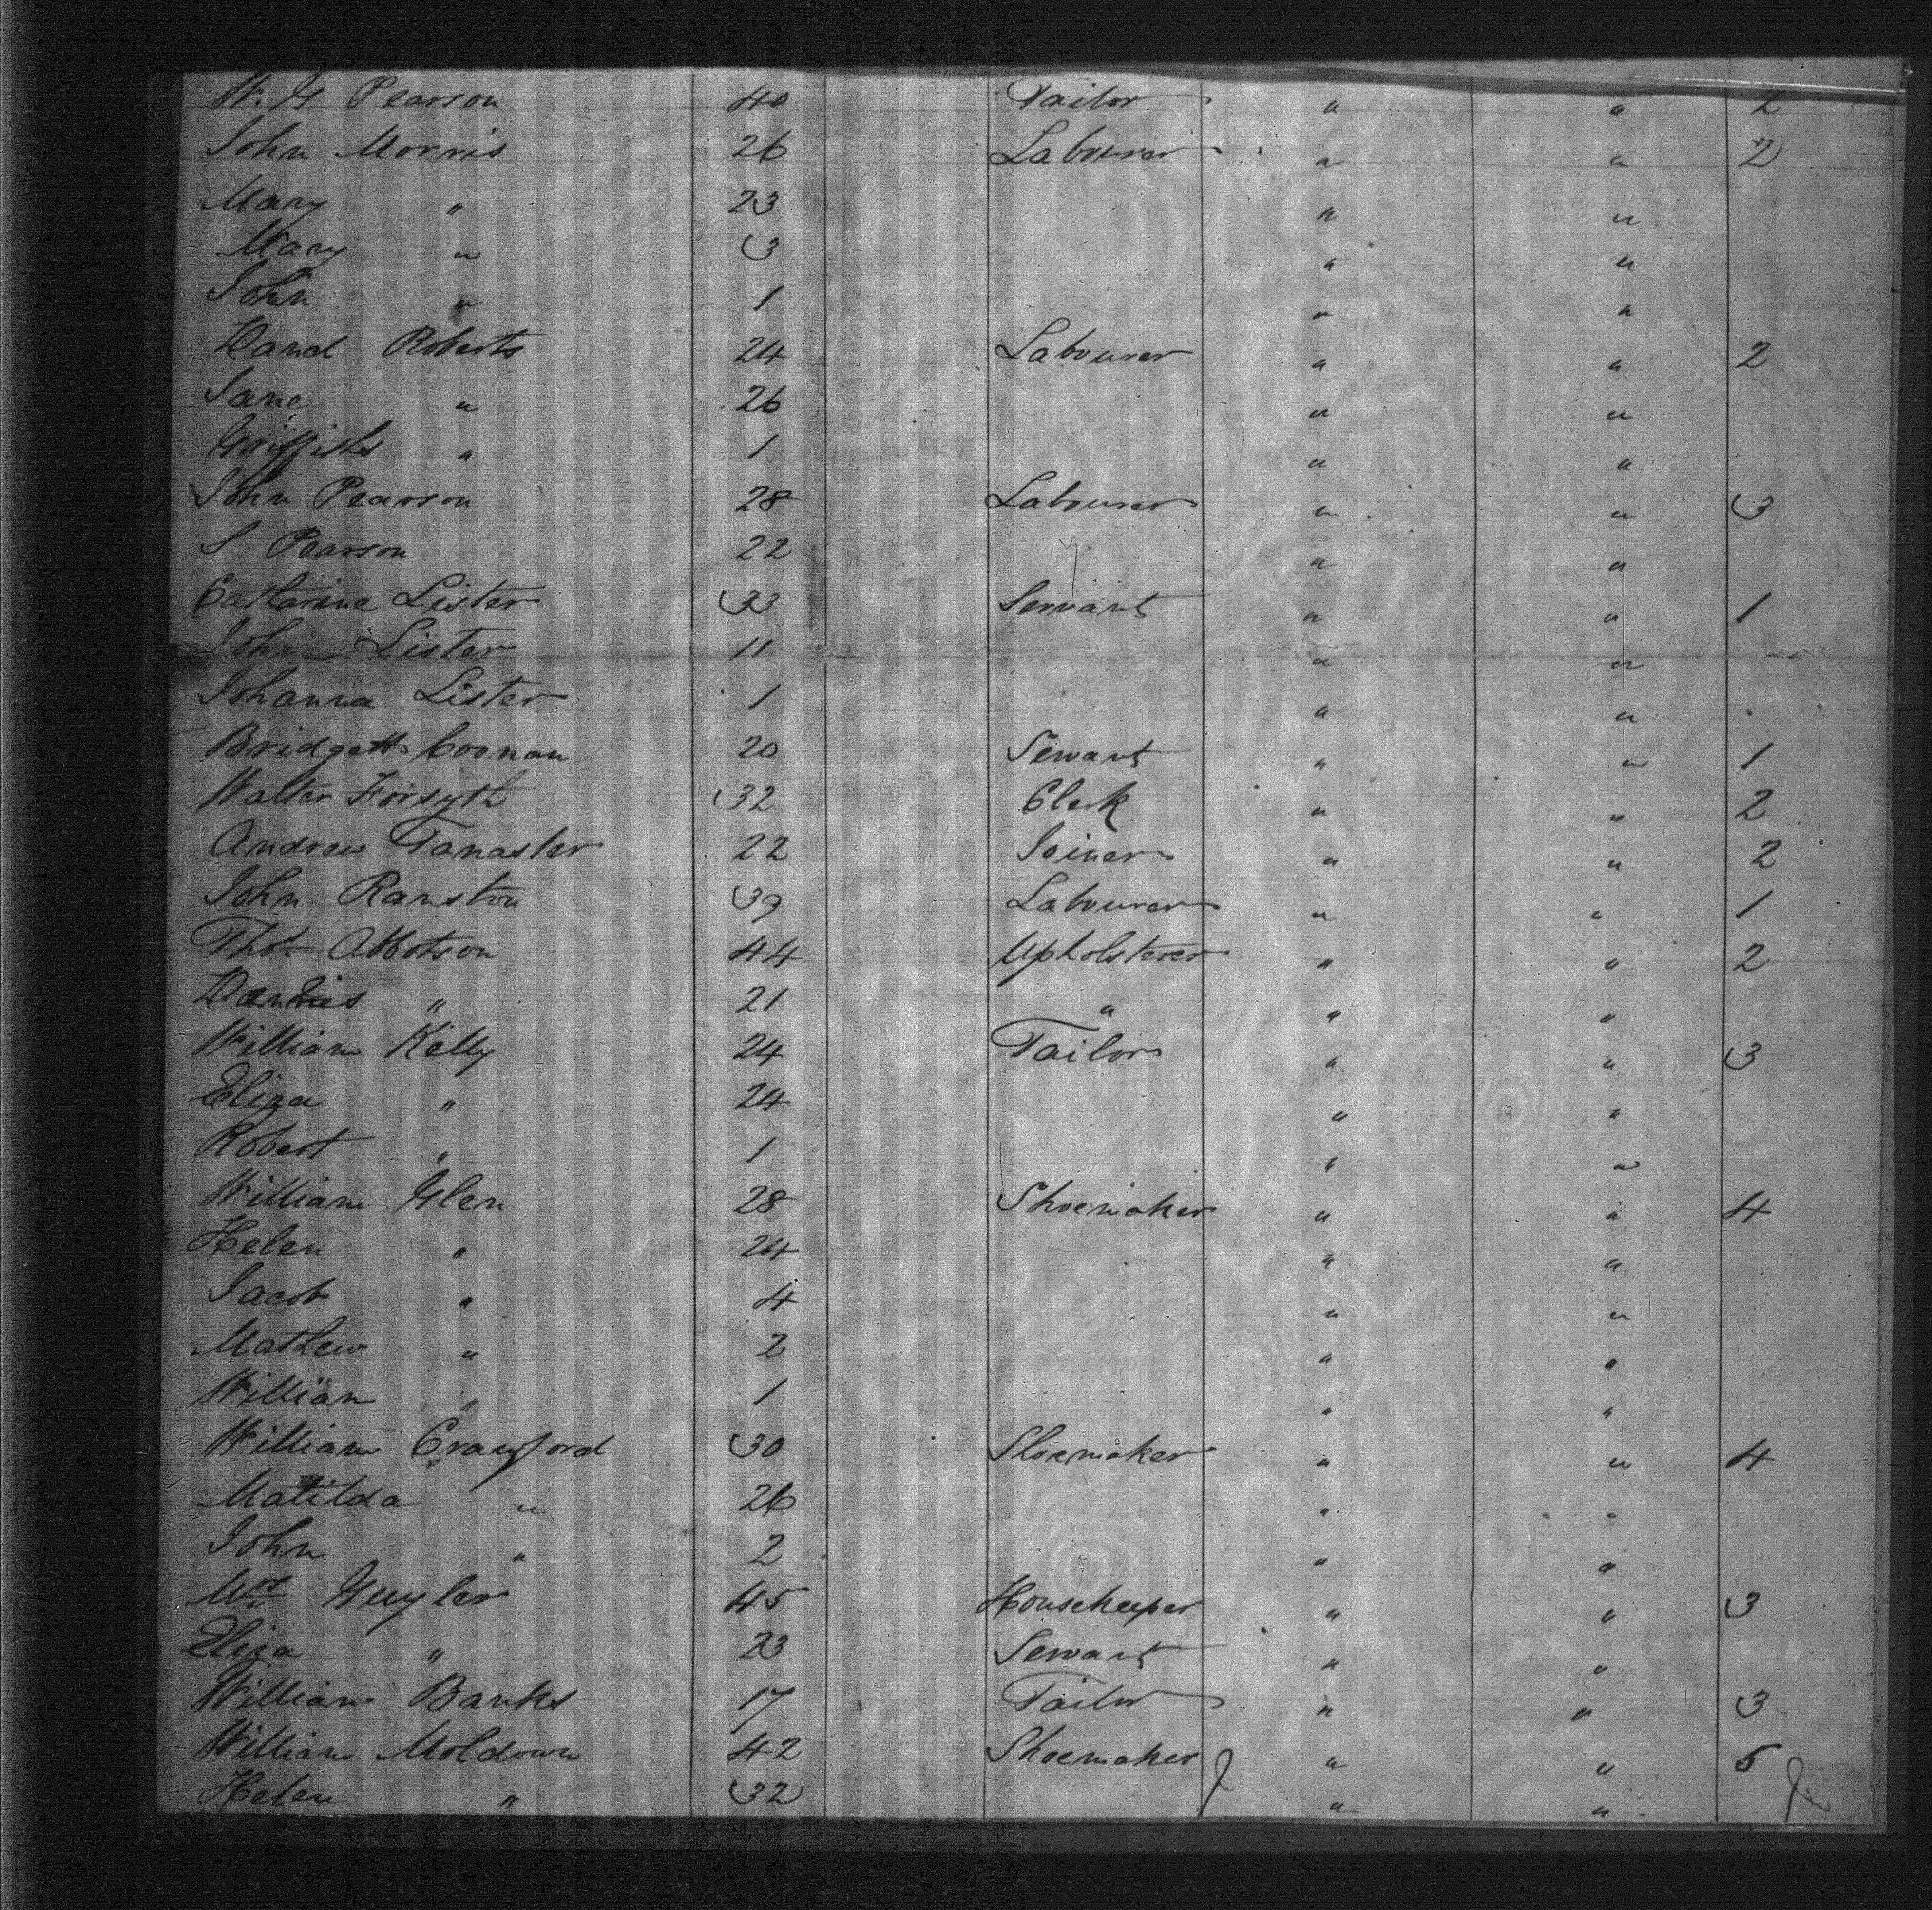 W. G Pearson 40 Tailor " " 2
John Morris 26 Labourer " " 2
Mary " 23 " "
Mary " 3 " "
John " 1 " "
David Roberts 24 Labourer " " 2
Jane " 26 " "
Griffith " 1 " "
John Pearson 28 Labourer " " 3
S Pearson 22 " "
Catharine Lister 33 Servant " " 1
John Lister 11 " "
Johanna Lister 1 " "
Bridgett Coonan 20 Servant " " 1
Walter Forsyth 32 Clerk " " 2
Andrew Tanasler 22 Joiner " " 2
John Ranston 39 Labourer " " 1
Thos Abbotson 44 Upholsterer " " 2
" 21 " " "
William Kelly 24 Tailor " " 3
Eliza " 24 " "
Robert " 1 " "
William Glen 28 Shoemaker " " 4
Helen " 24 " "
Jacob " 4 " "
Mathew " 2 " "
William " 1 " "
William Crawford 30 Shoemaker " " 4
Matilda " 26 " "
John " 2 " "
Mrs Guyler 45 Housekeeper " " 3
Eliza " 23 Servant " "
William Banks 17 Tailor " " 3
William Moldown 42 Shoemaker " " 5
Helen " 32 " "